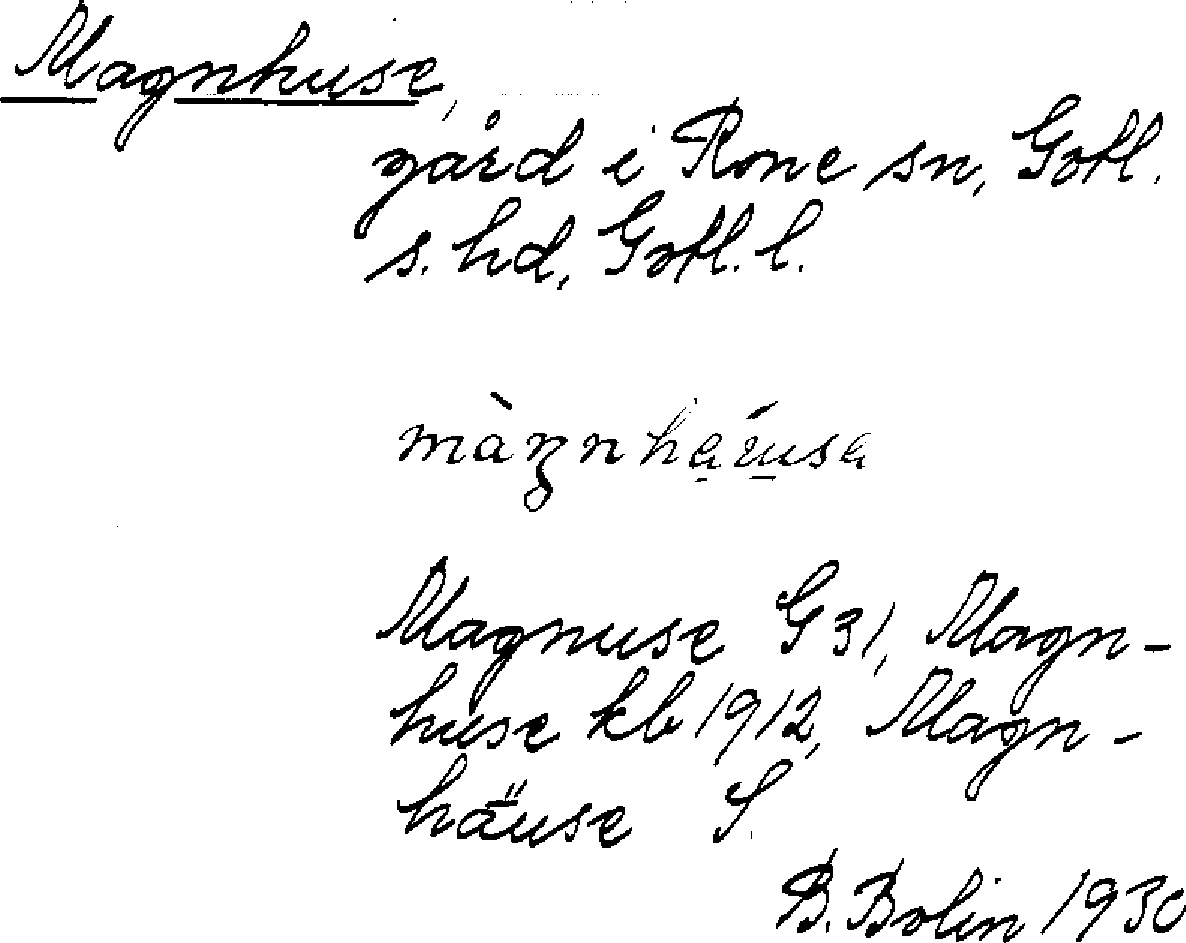 Magnhuse,
gård i Rone sn, Gotl.
s. hd, Gotl. l.
Magnuse G 31, Magn-
huse kb 1912, Magn-
häuse S.
B. Bolin 1930